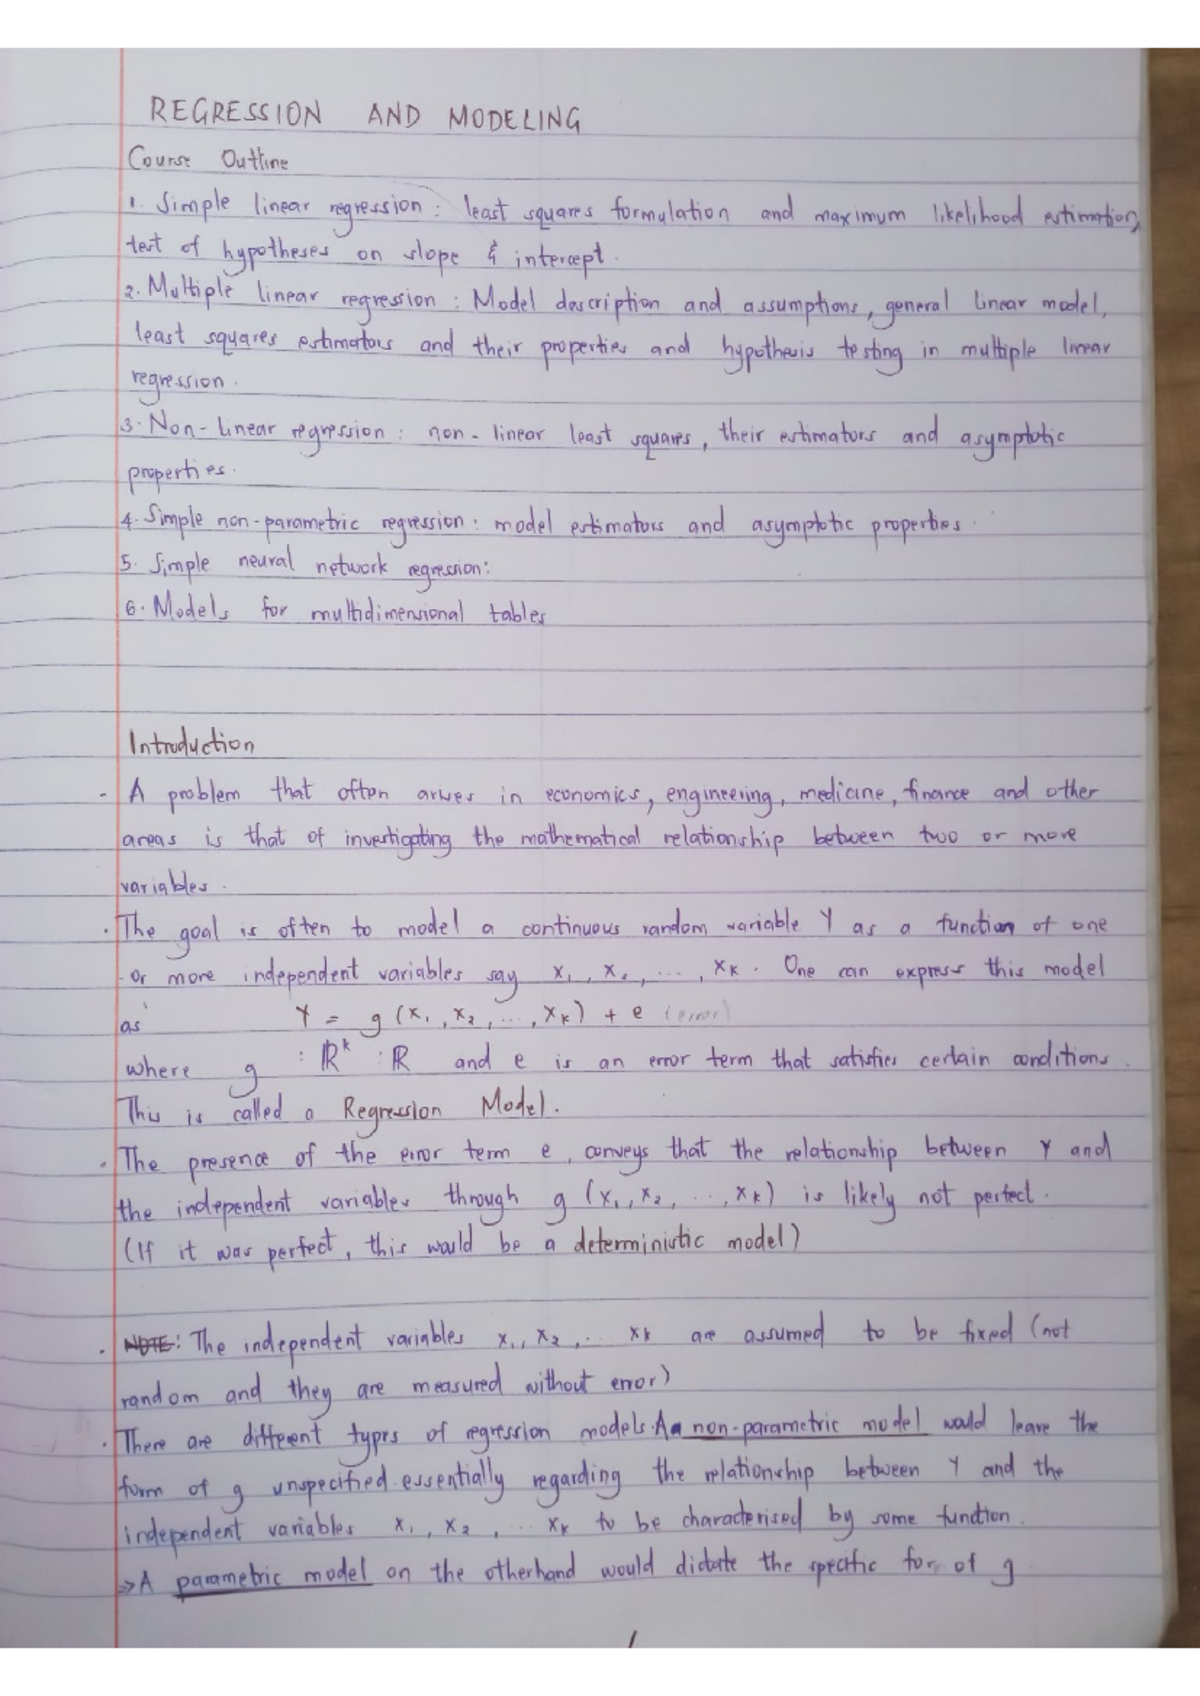 REGRESSION AND MODELING
Course Outline
1. Simple linear regression: least squares formulation and maximum likelihood estimation,
test of hypotheses on slope & intercept.
2. Multiple linear regression: Model description and assumptions, general linear model,
least squares estimators and their properties and hypothesis testing in multiple linear
regression.
3. Non-linear regression: non-linear least squares, their estimators and asymptotic
properties.
4. Simple non-parametric regression: model estimators and asymptotic properties.
5. Simple neural network regression:
6. Models for multidimensional tables
Introduction
- A problem that often arises in economics, engineering, medicine, finance and other
areas is that of investigating the mathematical relationship between two or more
variables.
. The goal is often to model a continuous random variable Y as a function of one
or more independent variables say x₁, x₂, ..., xₖ. One can express this model
as Y = g(x₁, x₂, ..., xₖ) + e (error)
where g : ℝᵏ : ℝ and e is an error term that satisfies certain conditions.
This is called a Regression Model.
. The presence of the error term e, conveys that the relationship between Y and
the independent variables through g (x₁, x₂, ..., xₖ) is likely not perfect.
(If it was perfect, this would be a deterministic model)
. NOTE: The independent variables x₁, x₂, ... xₖ are assumed to be fixed (not
random and they are measured without error)
. There are different types of regression models. A non-parametric model would leave the
form of g unspecified essentially regarding the relationship between Y and the
independent variables x₁, x₂, ... xₖ to be characterised by some function.
⇒ A parametric model on the otherhand would dictate the specific for of g
1